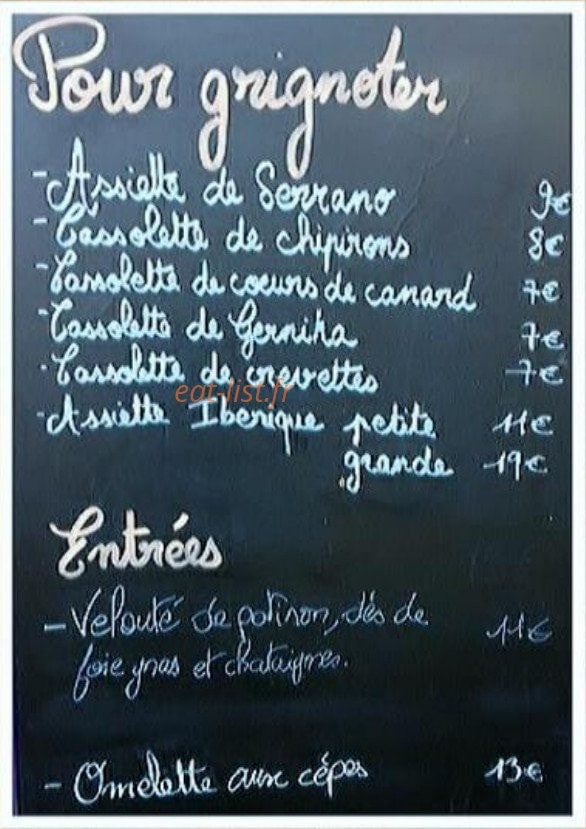 Pour grignoter
- Assiette de Serrano 9€
- Cassolette de chipirons 8€
- Cassolette de coeurs de canard 7€
- Cassolette de Gernika 7€
- Cassolette de crevettes 7€
eat-list.fr
- Assiette Iberique petite 11€
grande 19€
Entrées
- Velouté de potiron, dés de 11€
foie gras et chataignes.
- Omelette aux cépes 13€